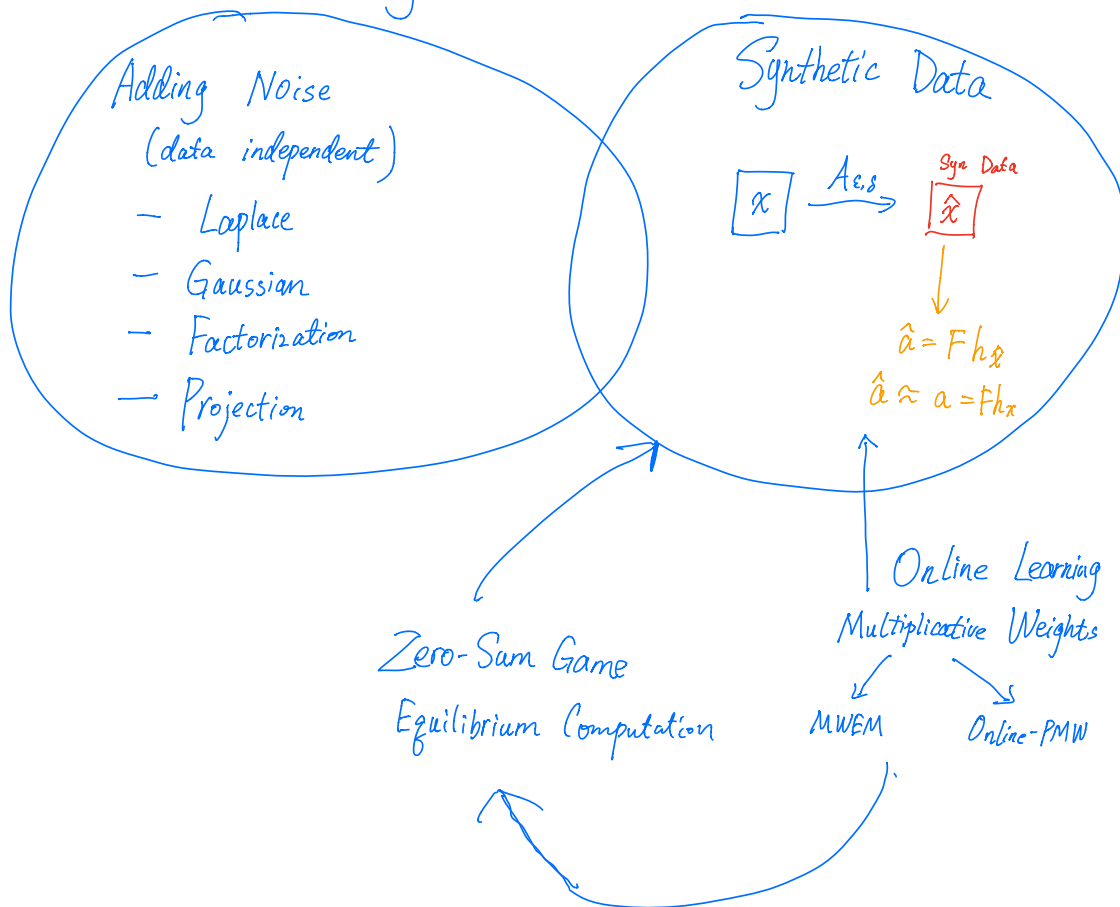 Adding Noise
(data independent)
- Laplace
- Gaussian
- Factorization
- Projection
Synthetic Data
x
A_{ε,δ}
Syn Data
x̂
â = F h_{x̂}
â ≈ a = F h_x
Online Learning
Multiplicative Weights
MWEM
Online-PMW
Zero-Sum Game
Equilibrium Computation